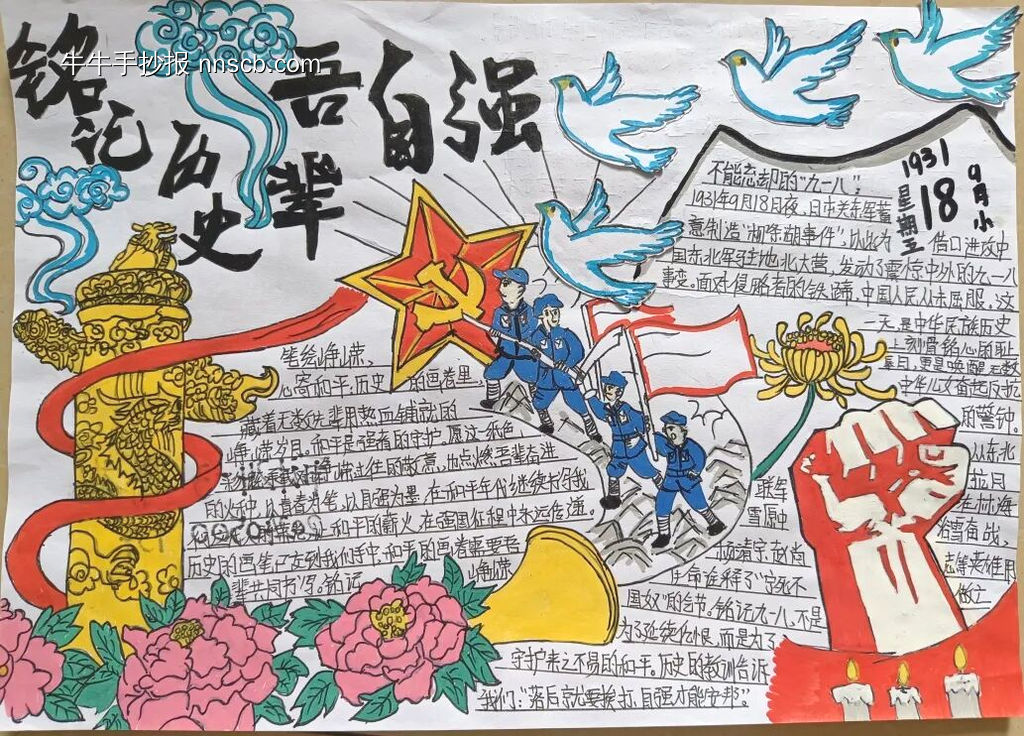 铭记历史
吾辈自强
牛牛手抄报 nnscb.com
笔绘峥嵘、
心寄和平,历史的画卷里,
藏着无数先辈用热血铺就的
峥嵘岁月。和平是强者的守护,愿这一纸色
也点燃吾辈奋进
的火种,以青春为笔,以自强为墨,在和平年代继续书写我
和平的薪火,在强国征程中永远传递。
历史的画笔已交到我们手中,和平的画卷需要吾
辈共同书写。铭记峥嵘
1931
9月小
18
星期五
不能忘却的“九一八”:
1931年9月18日夜,日本关东军蓄
意制造“柳条湖事件”,以此为借口进攻中
国东北军驻地北大营,发动了震惊中外的九一八
事变。面对侵略者的铁蹄,中国人民从未屈服。这
一天,是中华民族历史
上刻骨铭心的耻
辱日,更是唤醒无数
中华儿女奋起反抗
的警钟。
从东北
抗日
联军在林海
雪原中浴雪奋战,
杨靖宇、赵尚志等英雄用
生命诠释了“宁死不做亡
国奴”的气节。铭记九一八,不是
为了延续仇恨,而是为了
守护来之不易的和平。历史的教训告诉
我们:“落后就要挨打,自强才能安邦”。